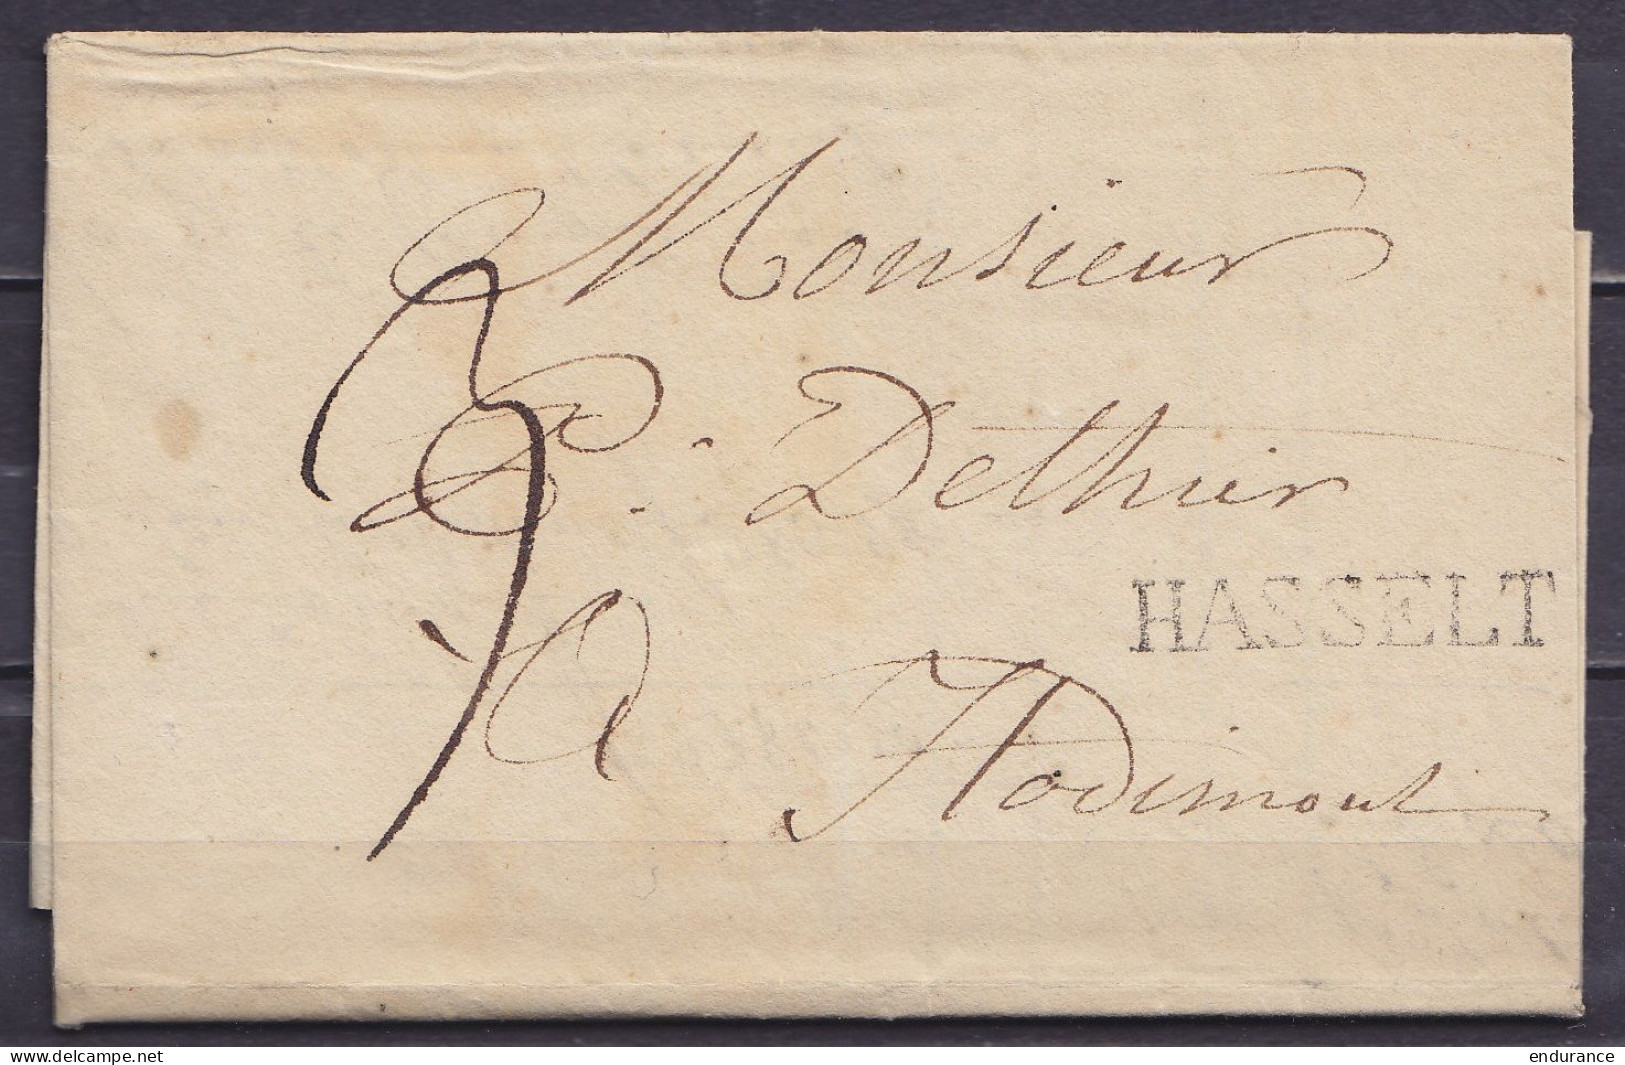 Monsieur
P. Dethier
HASSELT
a Hodimont
3
www.delcampe.net
endurance